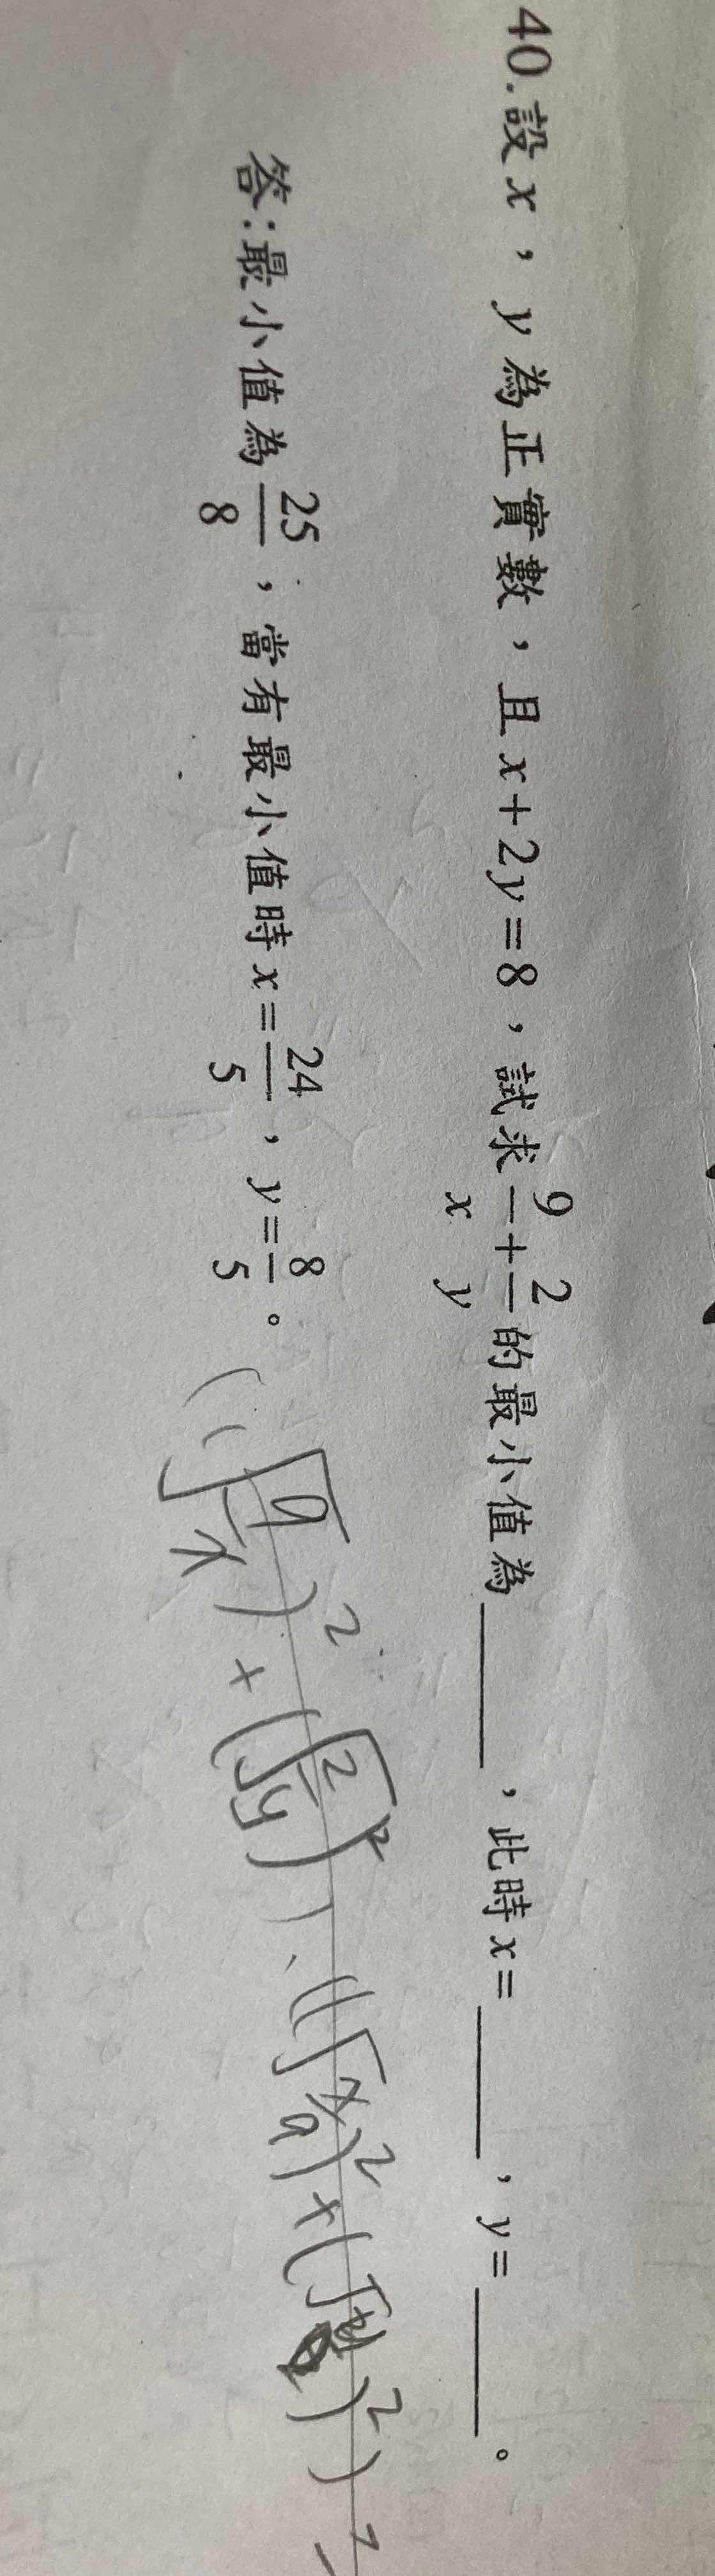 40.設x，y為正實數，且x+2y=8，試求9/x+2/y的最小值為＿＿＿，此時x=＿＿＿，y=＿＿＿。
答:最小值為25/8，當有最小值時x=24/5，y=8/5。
((√(9/x))²+(√(2/y))²)